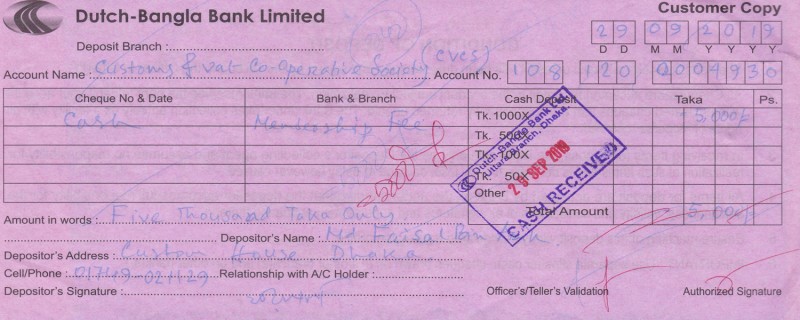 Dutch-Bangla Bank Limited
Customer Copy
29 09 2019
D D M M Y Y Y Y
Deposit Branch :
Account Name : Customs & Vat Co-Operative Society (CVCS) Account No. 108 120 0004930
Cheque No & Date Bank & Branch Cash Deposit Taka Ps.
Cash Membership Fee Tk. 1000X 5,000/-
Tk. 500X
Tk. 100X
Tk. 50X
Other
5000/-
Dutch-Bangla Bank Ltd.
Uttara Branch, Dhaka.
29 SEP 2019
CASH RECEIVED
Total Amount 5,000/-
Amount in words : Five Thousand Taka Only
Depositor's Name : Md. Faisal Bin
Depositor's Address : Custom House, Dhaka
Cell/Phone : 01749-021129 Relationship with A/C Holder :
Depositor's Signature :
Officer's/Teller's Validation Authorized Signature